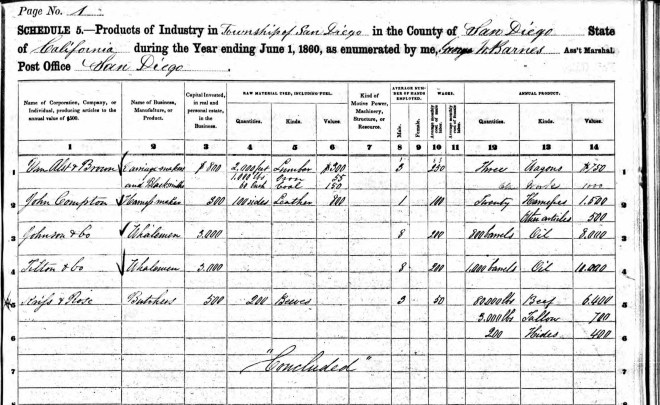 Page No. 1
SCHEDULE 5.—Products of Industry in Township of San Diego in the County of San Diego State
of California during the Year ending June 1, 1860, as enumerated by me, George W Barnes Ass't Marshal.
Post Office San Diego
Name of Corporation, Company, or Individual, producing articles to the annual value of $500.
Name of Business, Manufacture, or Product.
Capital Invested, in real and personal estate, in the Business.
RAW MATERIAL USED, INCLUDING FUEL.
Quantities. Kinds. Values.
Kind of Motive Power, Machinery, Structure, or Resource.
AVERAGE NUMBER OF HANDS EMPLOYED.
Male. Female.
WAGES.
Average monthly cost of male labor. Average monthly cost of female labor.
ANNUAL PRODUCT.
Quantities. Kinds. Values.
1 2 3 4 5 6 7 8 9 10 11 12 13 14
1 Van Alst & Brown Carriage makers $ 800 2,000 feet Lumber $ 300 3 Three Wagons $ 750 1
and Blacksmiths 1,000 lbs Iron 55 Work
Coal 150
2 John Compton Harness maker 300 100 sides Leather 800 1 100 Twenty Harnesses 1,500 2
Other articles 500
3 Johnson & Co Whalemen 3,000 8 200 800 barrels Oil 8,000 3
4 Tilton & Co Whalemen 3,000 8 200 1,000 barrels Oil 10,000 4
5 & Rose Butchers 500 200 Beeves 3 50 80,000 lbs Beef 6,400 5
3,000 lbs Tallow
6 200 Hides 400 6
7 "Concluded" 7